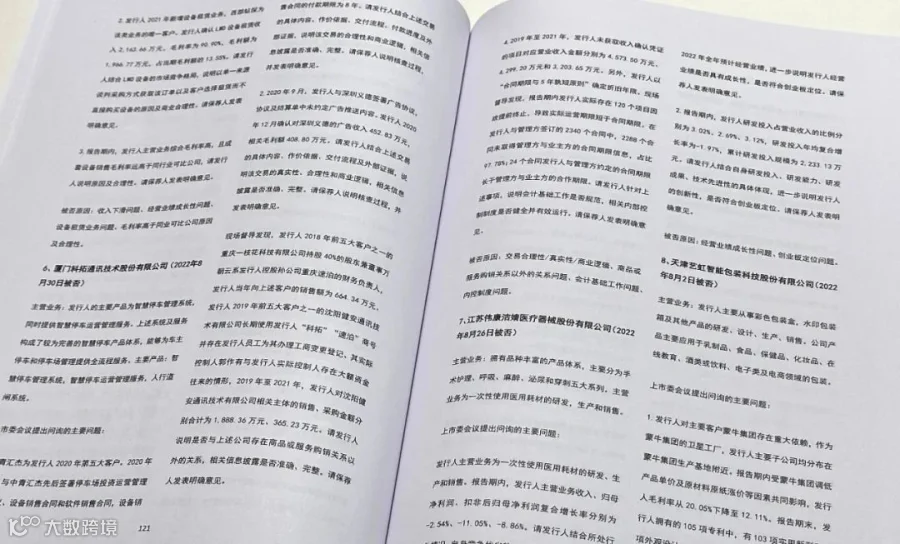 2. 发行人 2021 年新增设备租赁业务, 西部钻探为
该类业务的唯一客户。发行人确认 LWD 设备租赁收
入 2,162.66 万元, 毛利率为 90.90%, 毛利额为
1,966.77 万元, 占当期毛利额的 13.50%。请发行
人结合 LWD 设备的市场竞争格局, 说明以单一来源
谈判采购方式获取该订单以及客户选择租赁而不
直接购买设备的原因及商业合理性。请保荐人发表
明确意见。
3. 报告期内, 发行人主营业务综合毛利率高, 且成
套设备销售毛利率远高于同行业可比公司。请发行
人说明原因及合理性。请保荐人发表明确意见。
被否原因: 收入下滑问题、经营业绩成长性问题、设
备租赁业务问题、毛利率高于同业可比公司原因
及合理性。
6、厦门科拓通讯技术股份有限公司 (2022年8
月30日被否)
主营业务: 发行人的主要产品为智慧停车管理系统,
同时提供智慧停车运营管理服务, 上述系统及服务
构成了较为完善的智慧停车产品体系, 能够为车主
停车和停车场管理提供全流程服务。主要产品: 智
慧停车管理系统, 智慧停车运营管理服务, 人行道
闸系统。
市委会议提出问询的主要问题:
中青汇杰为发行人 2020 年第五大客户。2020 年
与中青汇杰先后签署停车场投资运营管理
、设备销售合同和软件销售合同, 设备销
121
售合同的付款期限为 8 年。请发行人结合上述交易
的具体内容、作价依据、交付流程、付款进度及外
部证据, 说明该交易的合理性和商业逻辑, 相关信
息披露是否准确、完整。请保荐人说明核查过程,
并发表明确意见。
2. 2020 年 9 月, 发行人与深圳义德签署广告协议,
协议及结算单中未约定广告推送内容。发行人 2020
年 12 月确认对深圳义德的广告收入 452.83 万元,
相关毛利额 408.80 万元。请发行人结合上述交易
的具体内容、作价依据、交付流程及外部证据, 说
明该交易的真实性、合理性和商业逻辑, 相关信息
披露是否准确、完整。请保荐人说明核查过程, 并
发表明确意见。
现场督导发现, 发行人 2018 年前五大客户之一的
重庆一枝花科技有限公司持股 40%的股东兼董事万
朝云系发行人控股孙公司重庆速泊的财务负责人,
发行人当年向上述客户的销售额为 664.34 万元。
发行人 2019 年前五大客户之一的沈阳健安通讯技
术有限公司长期使用发行人“科拓”“速泊”商号
并存在发行人员工为其办理工商变更登记, 其实际
控制人郭作有与发行人实际控制人存在大额资金
往来的情形。2019 年至 2021 年, 发行人对沈阳健
安通讯技术有限公司相关主体的销售、采购金额分
别合计为 1,888.36 万元、365.23 万元。请发行人
说明是否与上述公司存在商品或服务购销关系以
外的关系, 相关信息披露是否准确、完整。请保荐
人发表明确意见。
4. 2019 年至 2021 年, 发行人未获取收入确认凭证
的项目对应营业收入金额分别为 4,573.50 万元、
4,299.20 万元和 3,203.65 万元。另外, 发行人以
“合同期限与 5 年孰短原则”确定折旧年限。现场
督导发现, 报告期内发行人实际存在 120 个项目因
故提前终止, 导致实际运营期限短于合同期限。在
发行人与管理方签订的 2340 个合同中, 2288 个合
同未取得管理方与业主方的合同期限信息, 占比
97.78%; 24 个合同发行人与管理方约定的合同期限
长于管理方与业主方的合作期限。请发行人针对上
述事项, 说明会计基础工作是否规范, 相关内部控
制制度是否健全并有效运行。请保荐人发表明确意
见。
被否原因: 交易合理性/真实性/商业逻辑、商品或
服务购销关系以外的关系问题、会计基础工作问题、
内控制度问题。
7、江苏伟康洁婧医疗器械股份有限公司 (2022
年8月26日被否)
主营业务: 拥有品种丰富的产品体系, 主要分为手
术护理、呼吸、麻醉、泌尿和穿刺五大系列, 主营
业务为一次性使用医用耗材的研发、生产和销售。
上市委会议提出问询的主要问题:
发行人主营业务为一次性使用医用耗材的研发、生
产和销售。报告期内, 发行人主营业务收入、归母
净利润、扣非后归母净利润复合增长率分别为
-2.54%、-11.05%、-8.86%。请发行人结合所处行
2022 年全年预计经营业绩, 进一步说明发行人经营
业绩是否具有成长性, 是否符合创业板定位。请保
荐人发表明确意见。
2. 报告期内, 发行人研发投入占营业收入的比例分
别为 3.02%、2.69%、3.12%, 研发投入年均复合增
长率为-1.97%, 累计研发投入规模为 2,233.13 万
元。请发行人结合自身研发投入、研发能力、研发
成果、技术先进性的具体体现, 进一步说明发行人
的创新性, 是否符合创业板定位。请保荐人发表明
确意见。
被否原因: 经营业绩成长性问题, 创业板定位问题。
8、天津艺虹智能包装科技股份有限公司 (2022
年8月2日被否)
主营业务: 发行人主要从事彩色包装盒、水印包装
箱及其他产品的研发、设计、生产、销售。公司产
品主要应用于乳制品、食品、保健品、化妆品、在
线教育、酒类或饮料、电子类及电商领域的包装。
上市委会议提出问询的主要问题:
1. 发行人对主要客户蒙牛集团存在重大依赖, 作为
蒙牛集团的卫星工厂, 发行人主要子公司均分布在
蒙牛集团生产基地附近。报告期内受蒙牛集团调低
产品单价及原材料原纸涨价等因素共同影响, 发行
人毛利率从 20.05%下降至 12.11%。报告期末, 发
行人拥有的 105 项专利中, 有 103 项实用新型
大数跨境